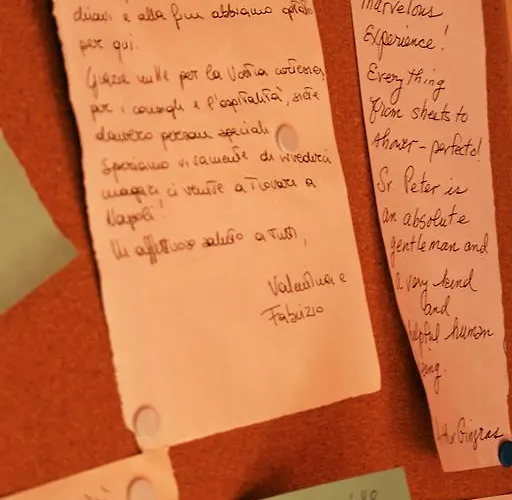 chiavi e alla fine abbiamo optato
per qui.
Grazie mille per la vostra cortesia,
per i consigli e l'ospitalità, siete
davvero persone speciali
Speriamo vivamente di rivederci
magari ci venite a trovare a
Napoli!
Un affettuoso saluto a tutti,
Valentina e
Fabrizio
marvelous
Experience!
Everything
from sheets to
shower - perfecto!
Sr. Peter is
an absolute
gentleman and
a very kind
and
helpful human
being.
Gingras